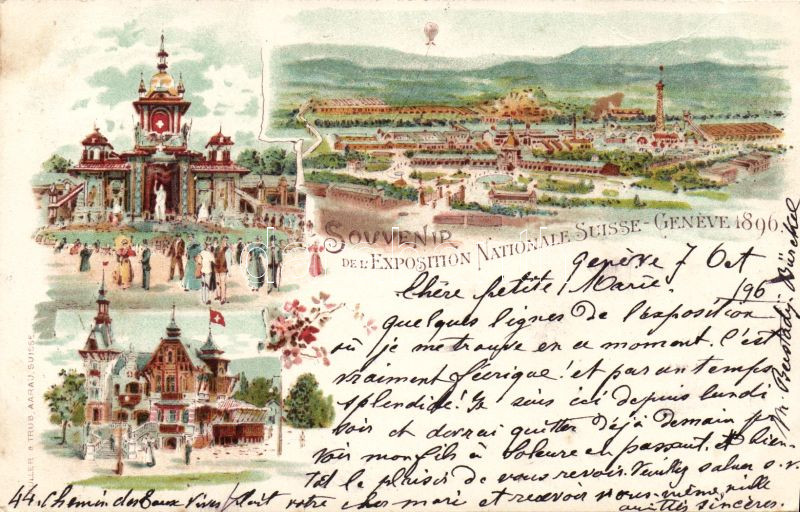 SOUVENIR
DE L'EXPOSITION NATIONALE SUISSE - GENÈVE 1896
Genève 7 Oct /96
Chère petite Marie.
quelques lignes de l'exposition
où je me trouve en ce moment. C'est
vraiment féerique! et par un temps
splendide! Je suis ici depuis lundi
soir et devrai quitter déjà demain pr
voir mon fils à en passant, et bien-
tôt le plaisir de vous revoir. Veuillez saluer s. v.
plait votre cher mari et recevoir vous-même mille
amitiés sincères.
44. Chemin des Eaux Vives
MÜLLER & TRÜB, AARAU, SUISSE.